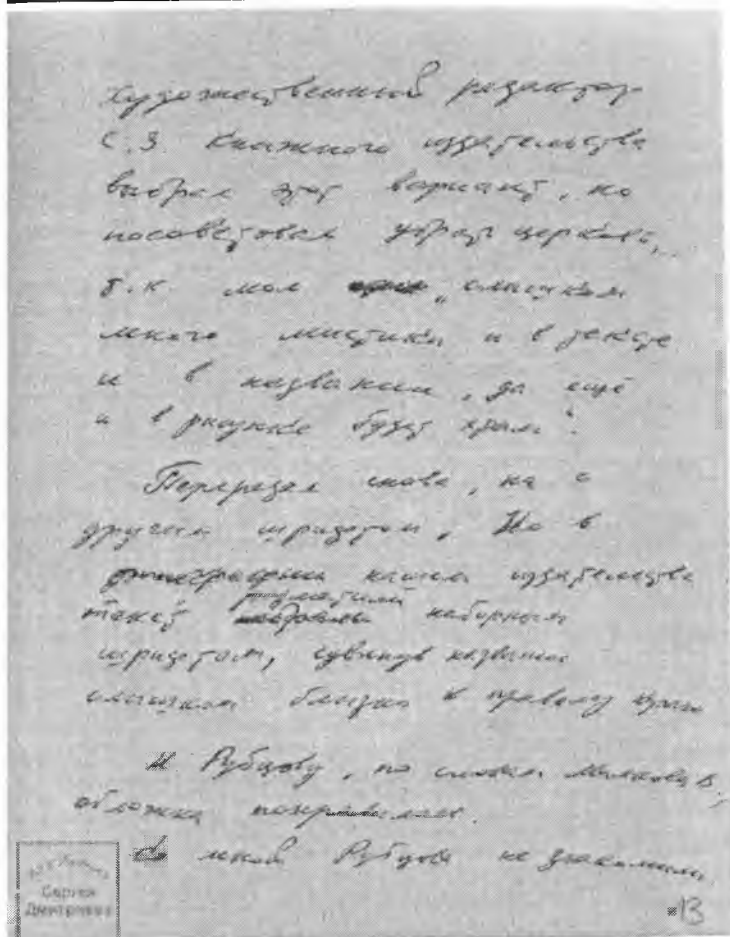 Художественный редактор
С.З. книжного издательства
выбрал этот вариант, но
посоветовал убрать церковь,
т.к. мол "слишком
много мистики и в тексте
и в названии, да ещё
и в рисунке будет храм".
Перерезал снова, но с
другим шрифтом. Но в
типографии нашего издательства
текст поместили наборным
шрифтом, сдвинув название
слишком близко к правому краю
Рубцову, по словам Малкова В.,
обложка понравилась.
мной Рубцова не знакомили.
Сергея
Дмитриева
13